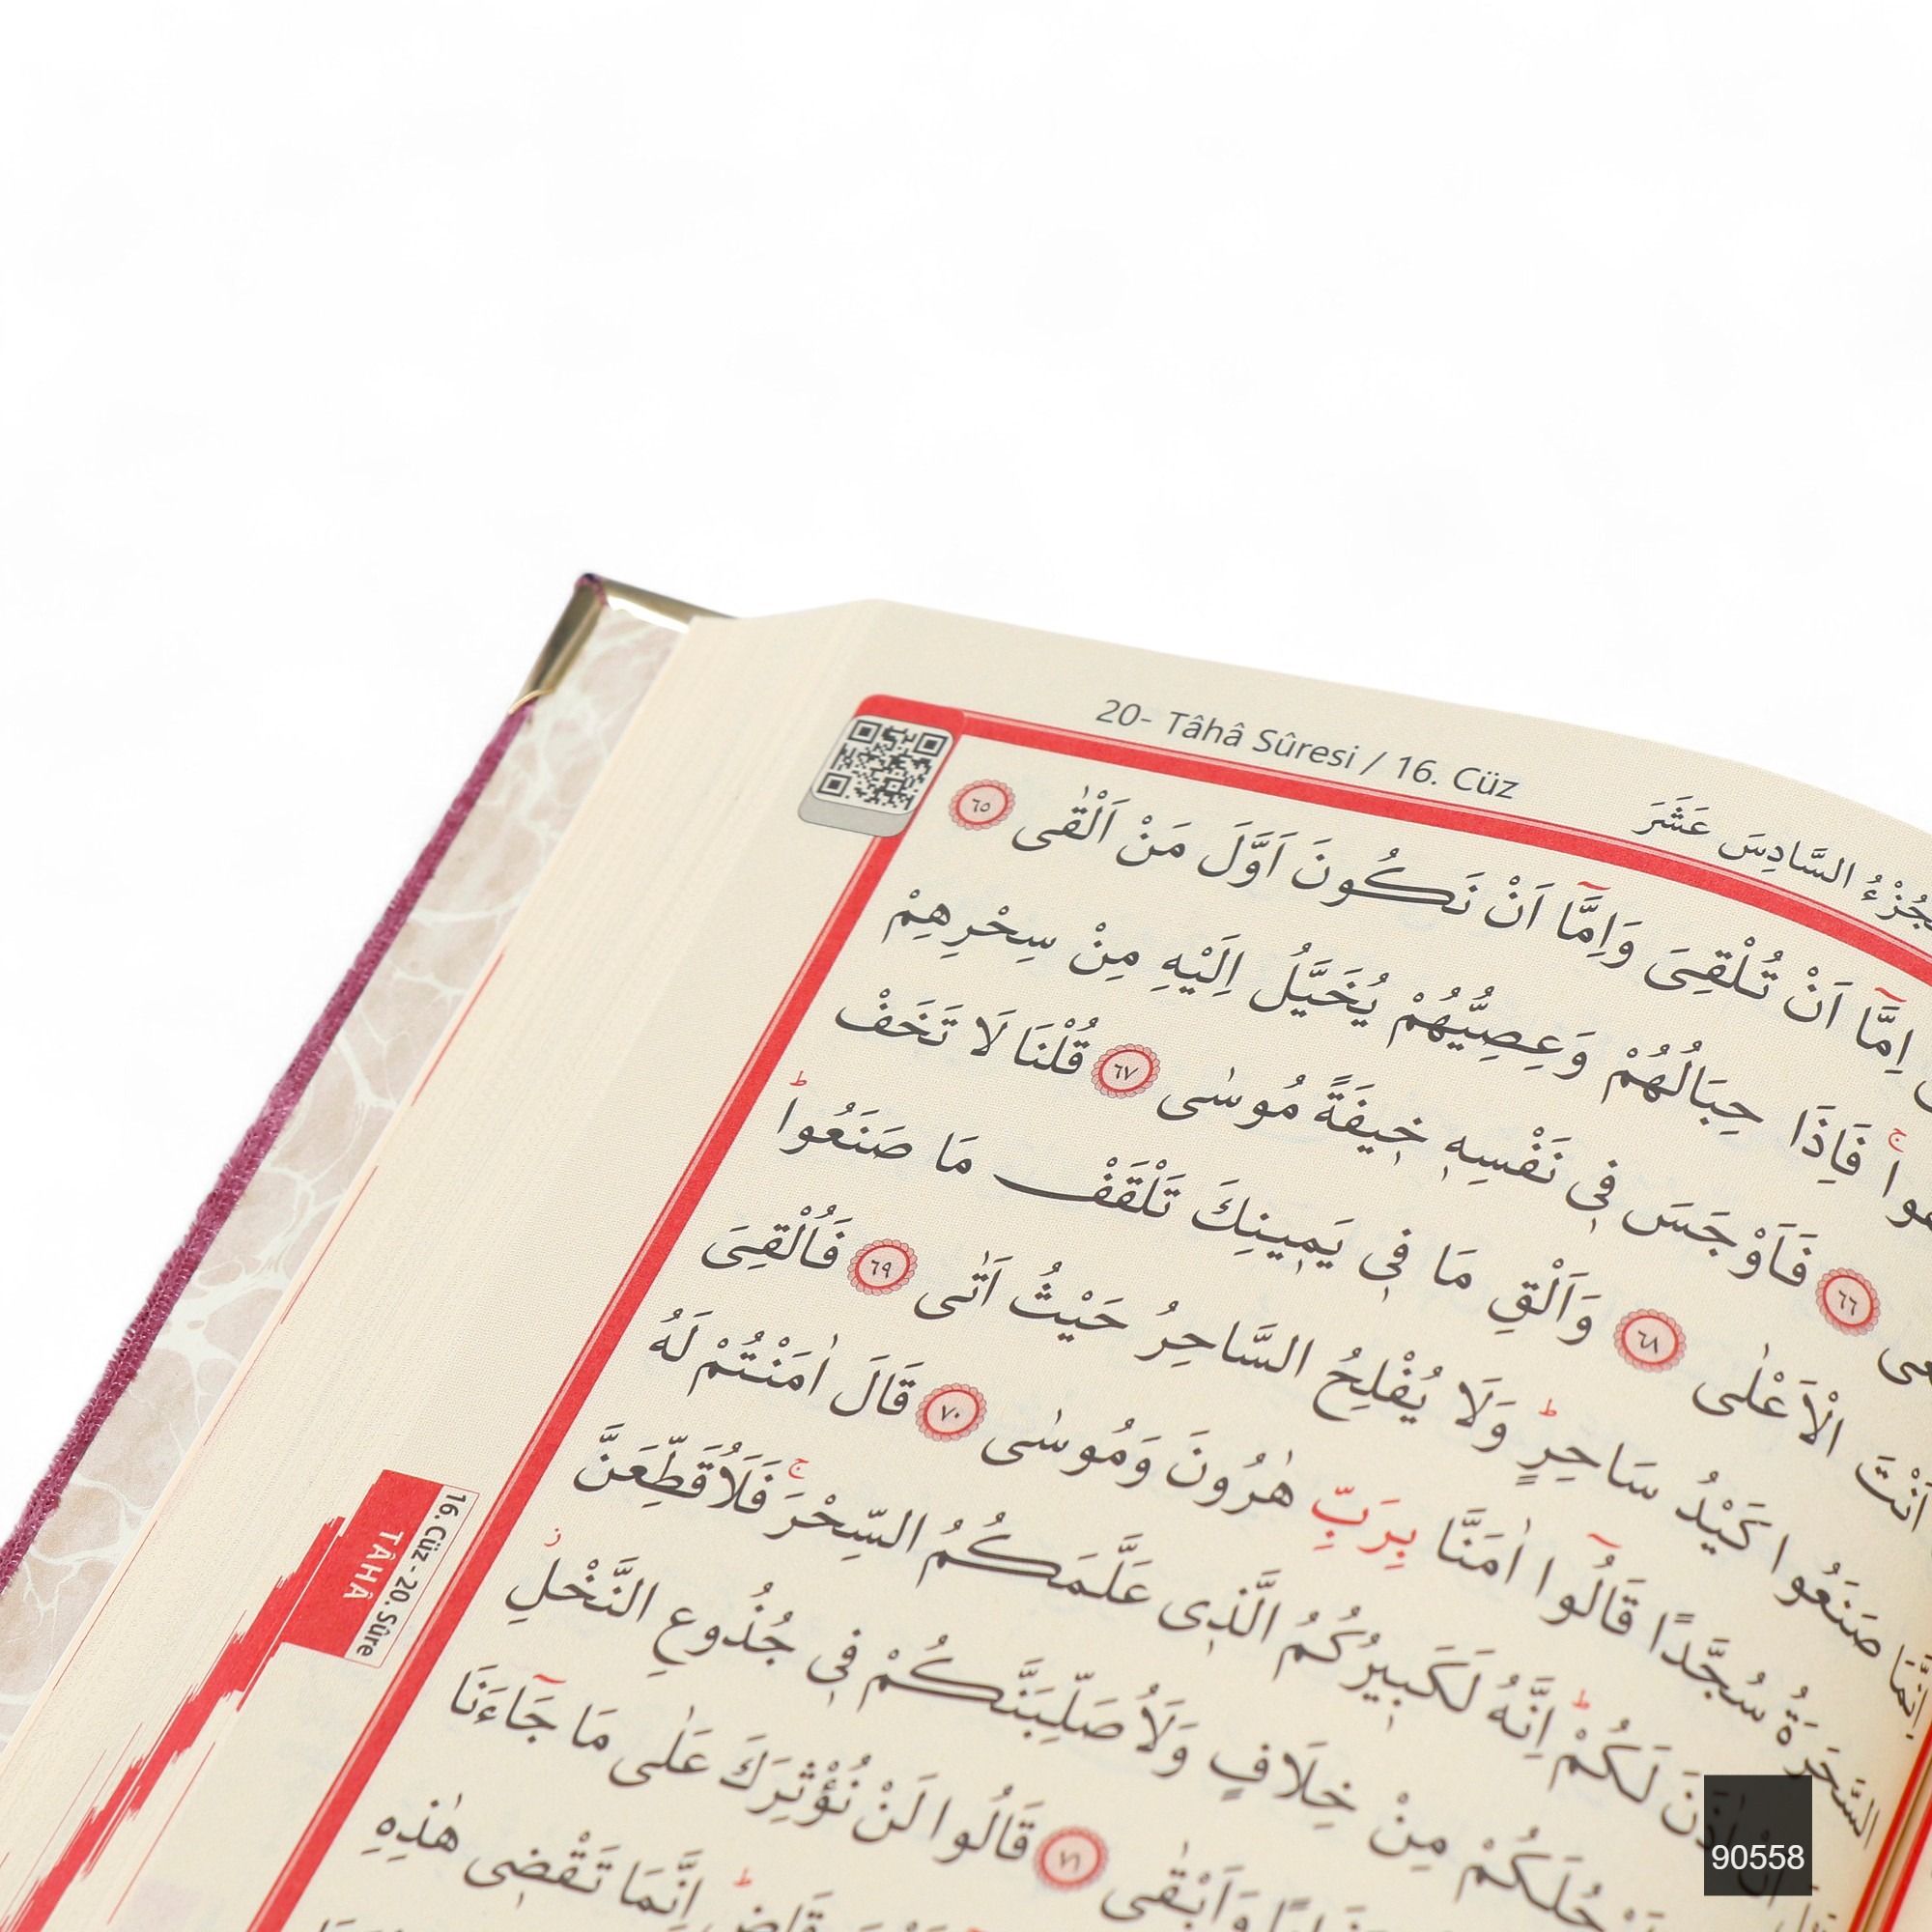 20- Tâhâ Sûresi / 16. Cüz
السَّادِسَ عَشَرَ
اِمَّٓا اَنْ تُلْقِىَ وَاِمَّٓا اَنْ نَكُونَ اَوَّلَ مَنْ اَلْقٰى ٦٥
فَاِذَا حِبَالُهُمْ وَعِصِيُّهُمْ يُخَيَّلُ اِلَيْهِ مِنْ سِحْرِهِمْ
٦٦ فَاَوْجَسَ فٖى نَفْسِهٖ خٖيفَةً مُوسٰى ٦٧ قُلْنَا لَا تَخَفْ
اَنْتَ الْاَعْلٰى ٦٨ وَاَلْقِ مَا فٖى يَمٖينِكَ تَلْقَفْ مَا صَنَعُواۜ
اِنَّمَا صَنَعُوا كَيْدُ سَاحِرٍۜ وَلَا يُفْلِحُ السَّاحِرُ حَيْثُ اَتٰى ٦٩ فَاُلْقِىَ
السَّحَرَةُ سُجَّدًا قَالُٓوا اٰمَنَّا بِرَبِّ هٰرُونَ وَمُوسٰى ٧٠ قَالَ اٰمَنْتُمْ لَهُ
لَكُمْۜ اِنَّهُ لَكَبٖيرُكُمُ الَّذٖى عَلَّمَكُمُ السِّحْرَۚ فَلَاُقَطِّعَنَّ
مِنْ خِلَافٍ وَلَاُصَلِّبَنَّكُمْ فٖى جُذُوعِ النَّخْلِؗ
وَاَبْقٰى ٧١ قَالُوا لَنْ نُؤْثِرَكَ عَلٰى مَا جَٓاءَنَا
اِنَّمَا تَقْضٖى هٰذِهِ
16. Cüz - 20. Sûre
TÂHÂ
90558